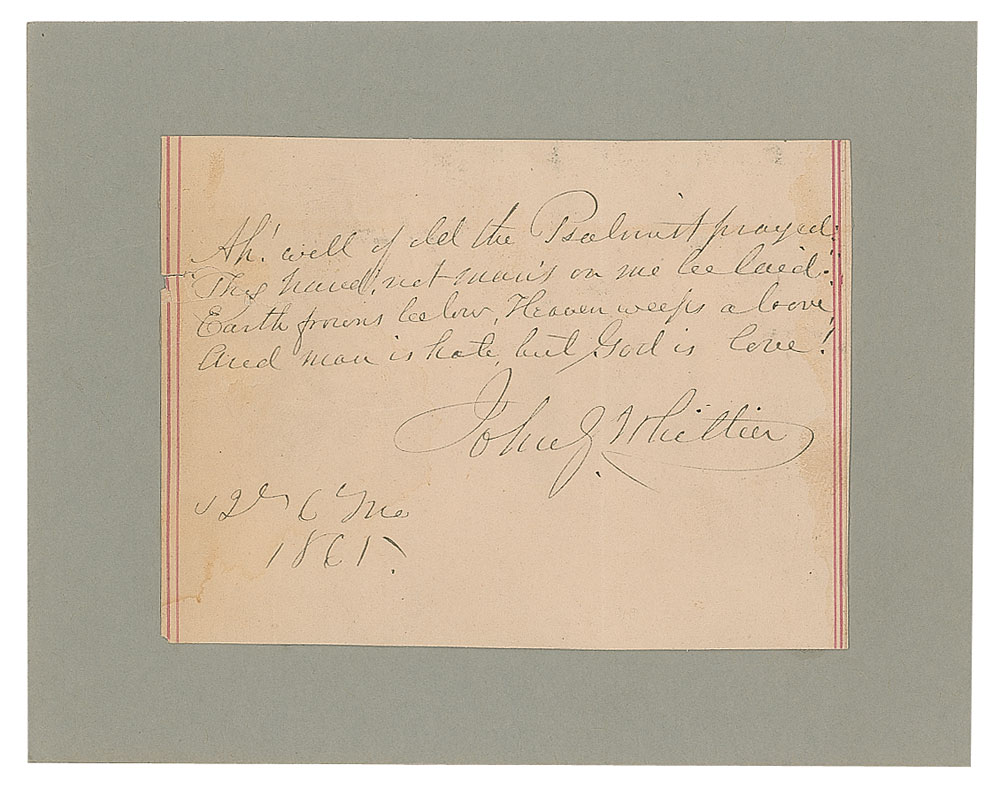 Ah! well of old the Psalmist prayed:
Thy hand, not man's on me be laid!
Earth frowns below, Heaven weeps above,
And man is hate, but God is love!
John G. Whittier
12th 6 Mo
1861.